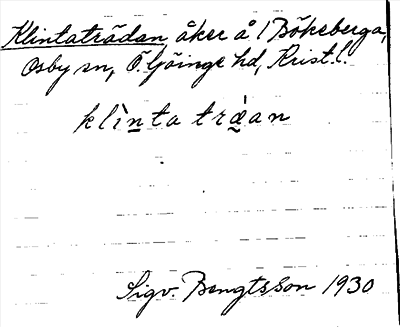 Klintaträdan, åker å 1 Bökeberga,
Osby sn, Ö. Göinge hd, Krist. l.
klìnta träan
Sigv. Bengtsson 1930